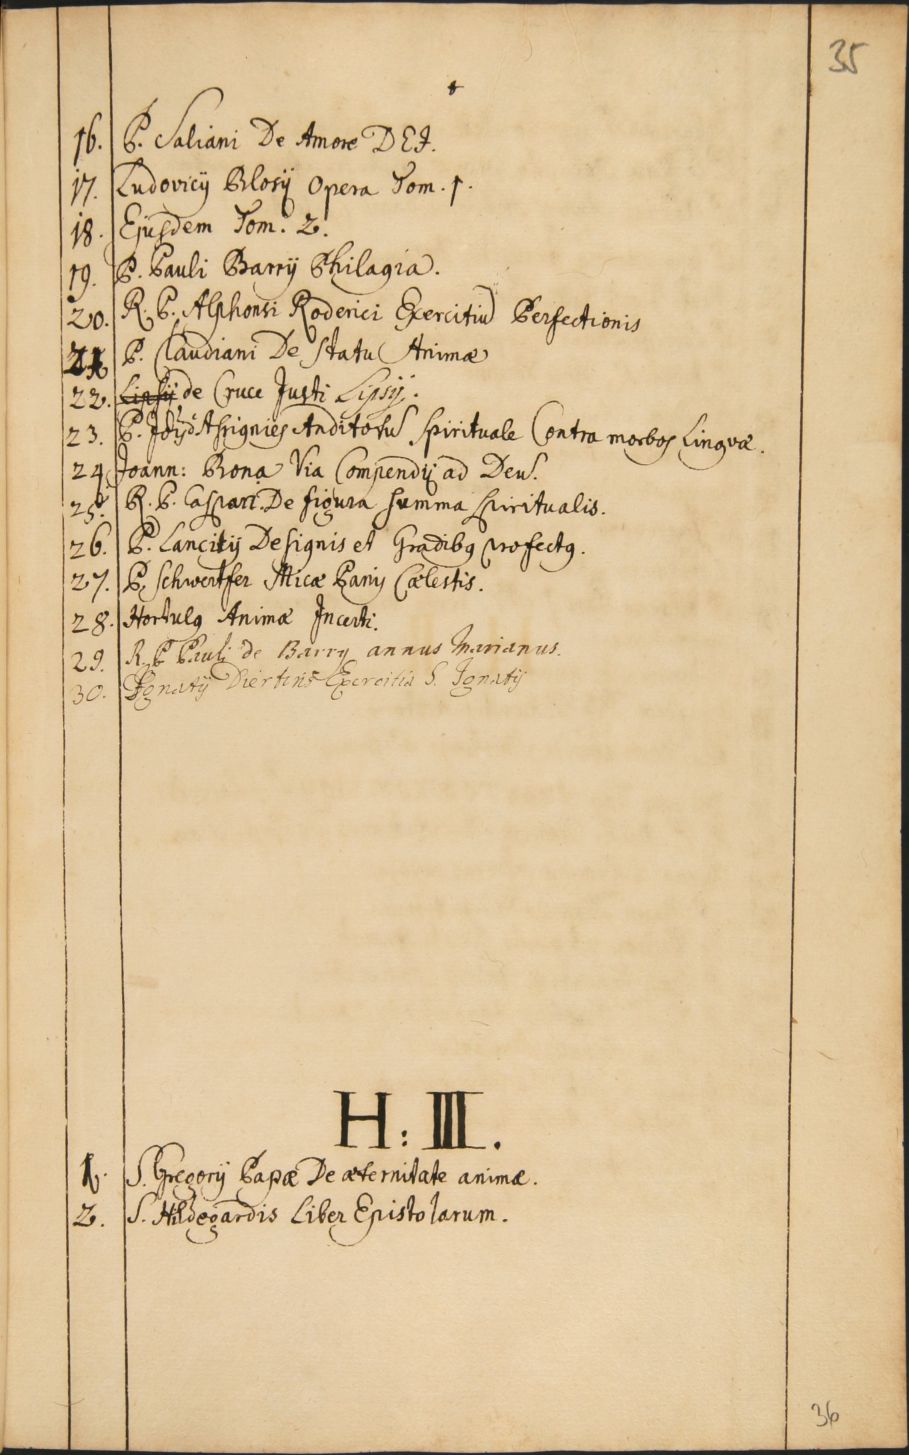 35
16. P. Saliani De Amore DEI.
17. Ludovicij Blosij Opera Tom. 1.
18. Ejusdem Tom. 2.
19. P. Pauli Barrij Philagia.
20. R. P. Alphonsi Roderici Exercitiū Perfectionis
21 P. Claudiani De Statu Animæ
22. Lipsij de Cruce Justi Lipsij.
23. P. d'Assignies Antidotūs Spirituale Contra morbos Lingvæ.
24 Joann: Bona Via Compendij ad Deū.
25. R. P. Caspari. De figura summa Spiritualis.
26. P. Lancitij De signis et Gradibq Profectq.
27. P. Schwertfer Micæ Panis Cælestis.
28. Hortulq Animæ Incerti.
29. R. P Pauli de Barry annus Marianus.
30. Ignatij Diertins Exercitia S. Ignatij
H: III.
1. S. Gregorij Papæ De æternitate animæ.
2. S. Hildegardis Liber Epistolarum.
36